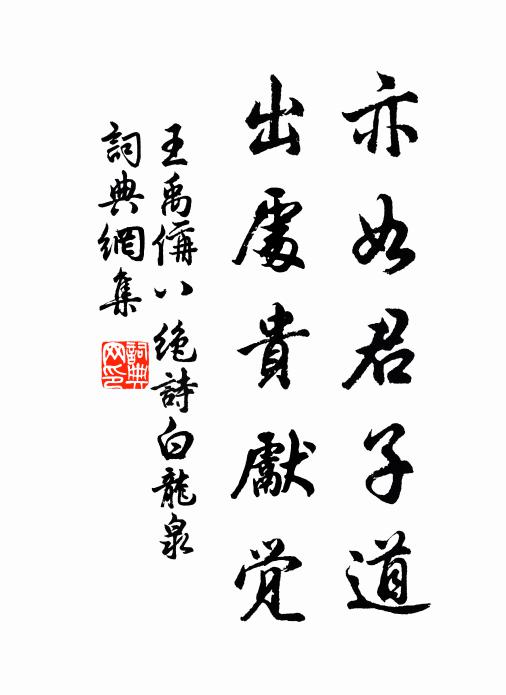 亦如君子道
出處貴獻觉
王禹偁八絕詩白龍泉
詞典網集
詞典网印